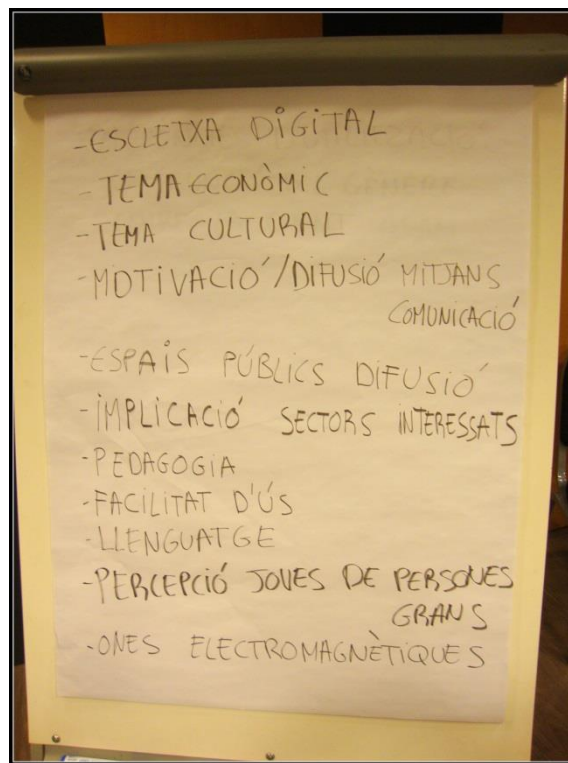 -ESCLETXA DIGITAL
-TEMA ECONÒMIC
-TEMA CULTURAL
-MOTIVACIÓ/DIFUSIÓ MITJANS
COMUNICACIÓ
-ESPAIS PÚBLICS DIFUSIÓ
-IMPLICACIÓ SECTORS INTERESSATS
-PEDAGOGIA
-FACILITAT D'ÚS
-LLENGUATGE
-PERCEPCIÓ JOVES DE PERSONES
GRANS
-ONES ELECTROMAGNÈTIQUES